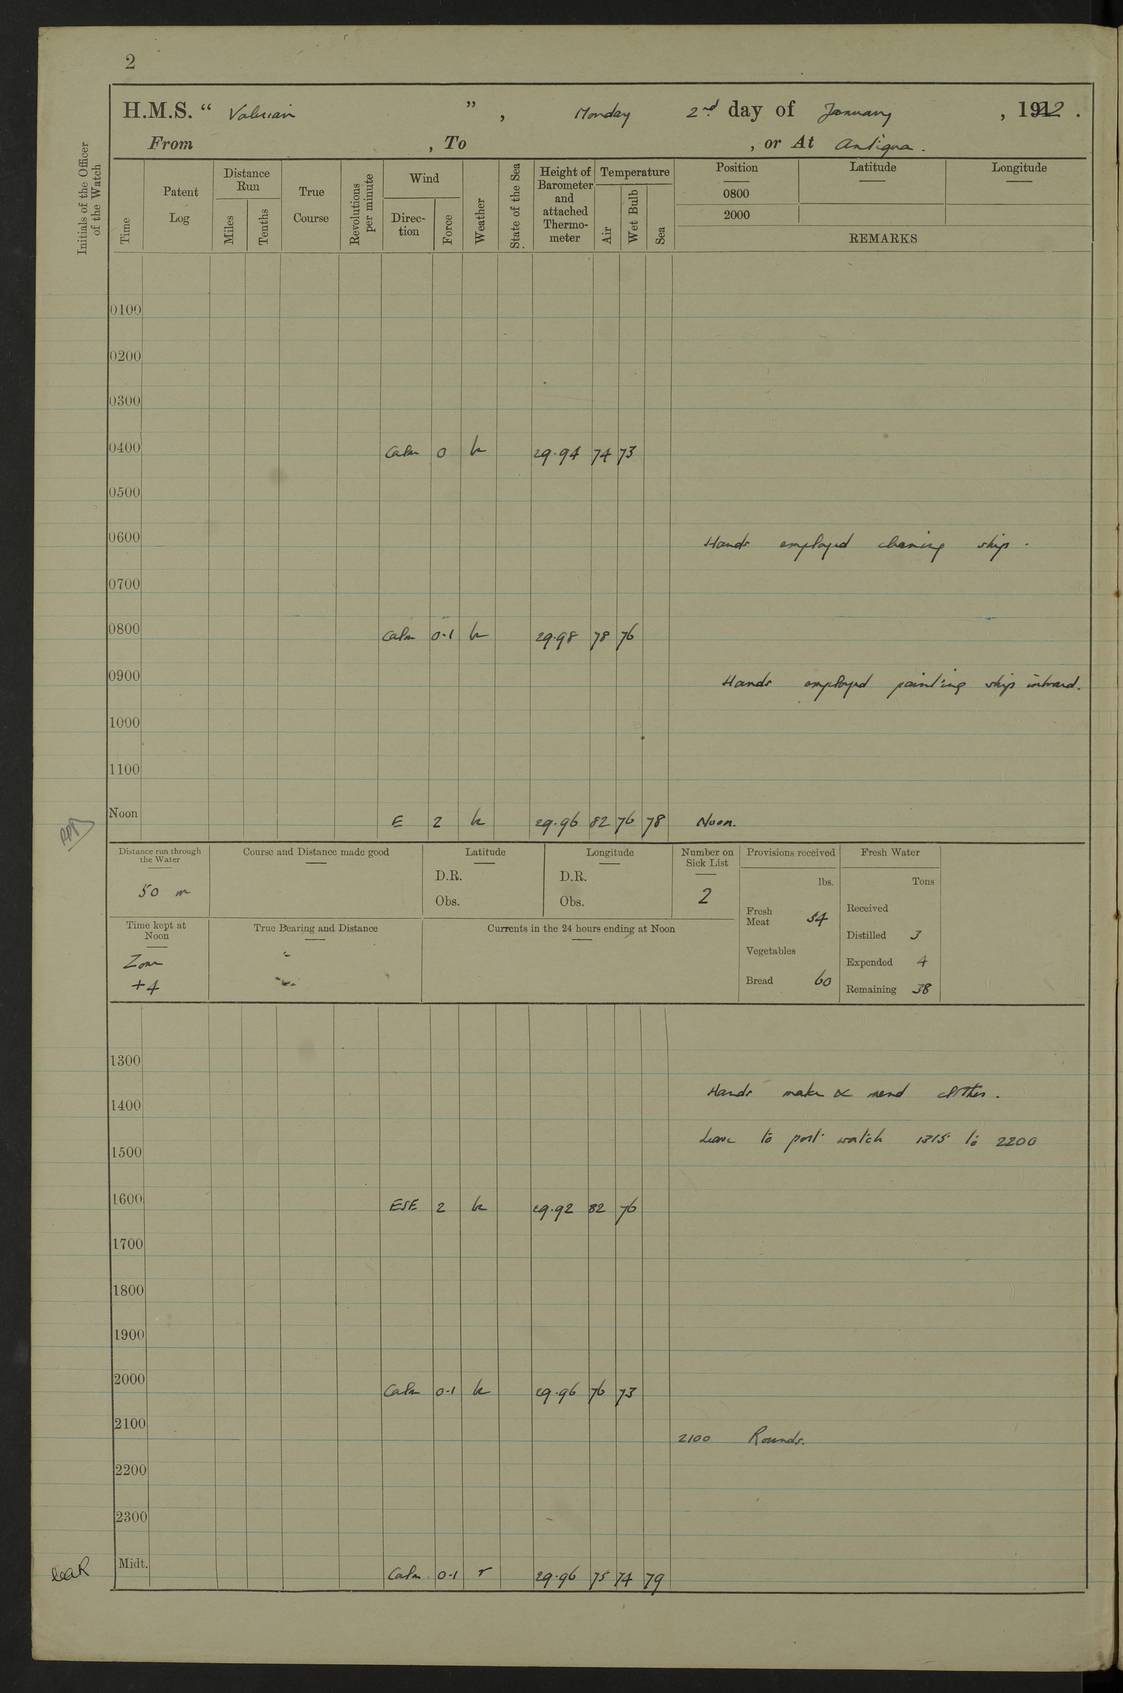 2
H.M.S. “ Valerian ” , Monday 2nd day of January , 1922 .
From , To , or At Antigua .
Initials of the Officer of the Watch
Time
Patent Log
Distance Run
Miles
Tenths
True Course
Revolutions per minute
Wind
Direc-tion
Force
Weather
State of the Sea
Height of Barometer and attached Thermo-meter
Temperature
Air
Wet Bulb
Sea
Position Latitude Longitude
0800
2000
REMARKS
0100
0200
0300
0400 Calm 0 bc 29.94 74 73
0500
0600 Hands employed cleaning ship .
0700
0800 Calm 0-1 bc 29.98 78 76
0900 Hands employed painting ship inboard.
1000
1100
Noon E 2 bc 29.96 82 76 78 Noon.
Distance run through the Water
50 m
Course and Distance made good
Latitude
D.R.
Obs.
Longitude
D.R.
Obs.
Number on Sick List
2
Provisions received
lbs.
Fresh Meat 54
Vegetables
Bread 60
Fresh Water
Tons
Received
Distilled 3
Expended 4
Remaining 38
Time kept at Noon
Zone
+4
True Bearing and Distance
Currents in the 24 hours ending at Noon
1300
Hands make & mend clothes .
1400
Leave to port watch 1315 to 2200
1500
1600 ESE 2 bc 29.92 82 76
1700
1800
1900
2000 Calm 0-1 bc 29.96 76 73
2100 2100 Rounds.
2200
2300
Midt. Calm 0-1 r 29.96 75 74 79